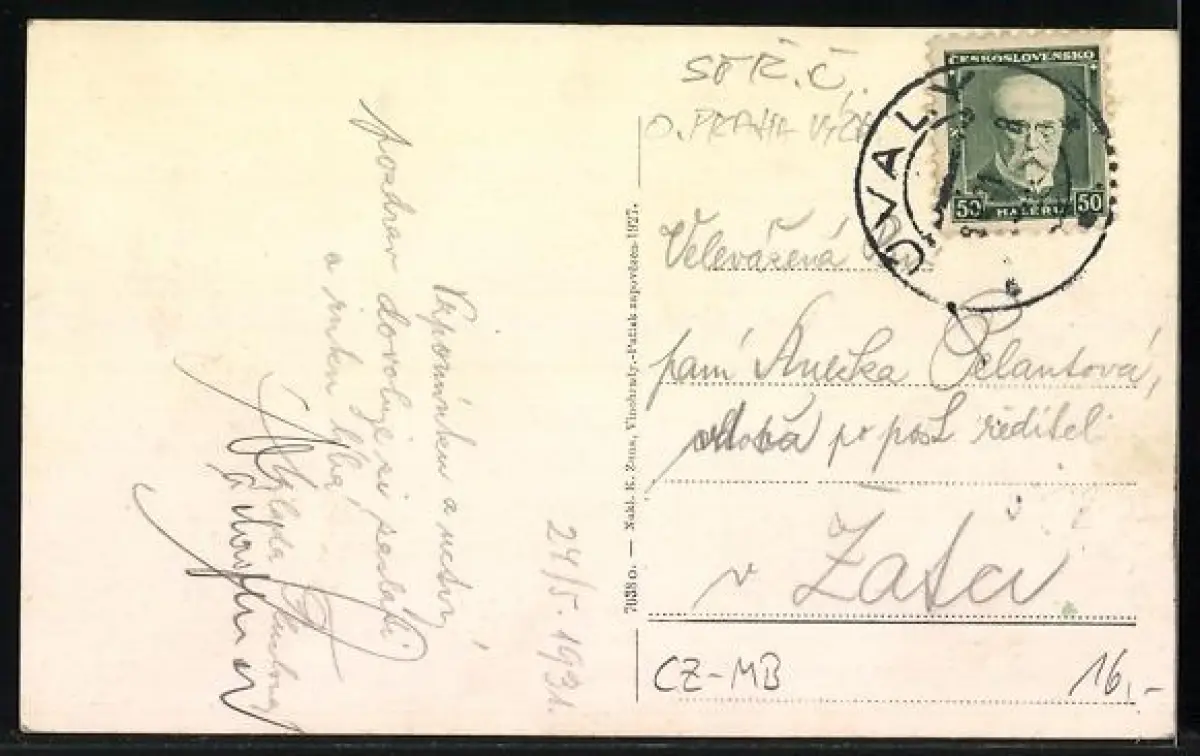 STŘ. Č.
O. PRAHA VÝCH
ČESKOSLOVENSKO
50 HALÉŘŮ 50
ÚVALY
Velevážená
paní Anežka Pelantová,
vdova po pošt. řediteli
v Žatci
CZ-MB
16,-
70380. — Nakl. K. Zuna, Vinohrady.-Patisk zapovězen-1927.
24/5. 1931.
Vzpomínku a uctivý
pozdrav dovoluje si zaslati
a ruku líbá